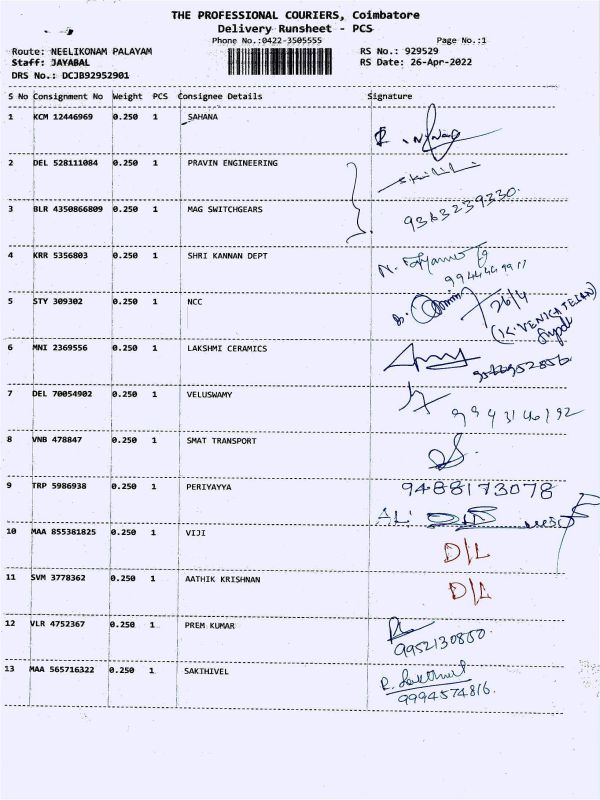 THE PROFESSIONAL COURIERS, Coimbatore
Delivery Runsheet - PCS
Phone No.:0422-3505555 Page No.:1
Route: NEELIKONAM PALAYAM RS No.: 929529
Staff: JAYABAL RS Date: 26-Apr-2022
DRS No.: DCJB92952901
S No Consignment No Weight PCS Consignee Details Signature
1 KCM 12446969 0.250 1 SAHANA
2 DEL 528111084 0.250 1 PRAVIN ENGINEERING
3 BLR 4350866809 0.250 1 MAG SWITCHGEARS 9363239330
4 KRR 5356803 0.250 1 SHRI KANNAN DEPT N.
5 STY 309302 0.250 1 NCC 26/4
(K.VENKATELAN)
6 MNI 2369556 0.250 1 LAKSHMI CERAMICS
7 DEL 70054902 0.250 1 VELUSWAMY 9943146192
8 VNB 478847 0.250 1 SMAT TRANSPORT
9 TRP 5986938 0.250 1 PERIYAYYA 9488173078
10 MAA 855381825 0.250 1 VIJI D/L
11 SVM 3778362 0.250 1 AATHIK KRISHNAN D/L
12 VLR 4752367 0.250 1 PREM KUMAR 9952130850.
13 MAA 565716322 0.250 1 SAKTHIVEL R. Sakthivel
9994574816.